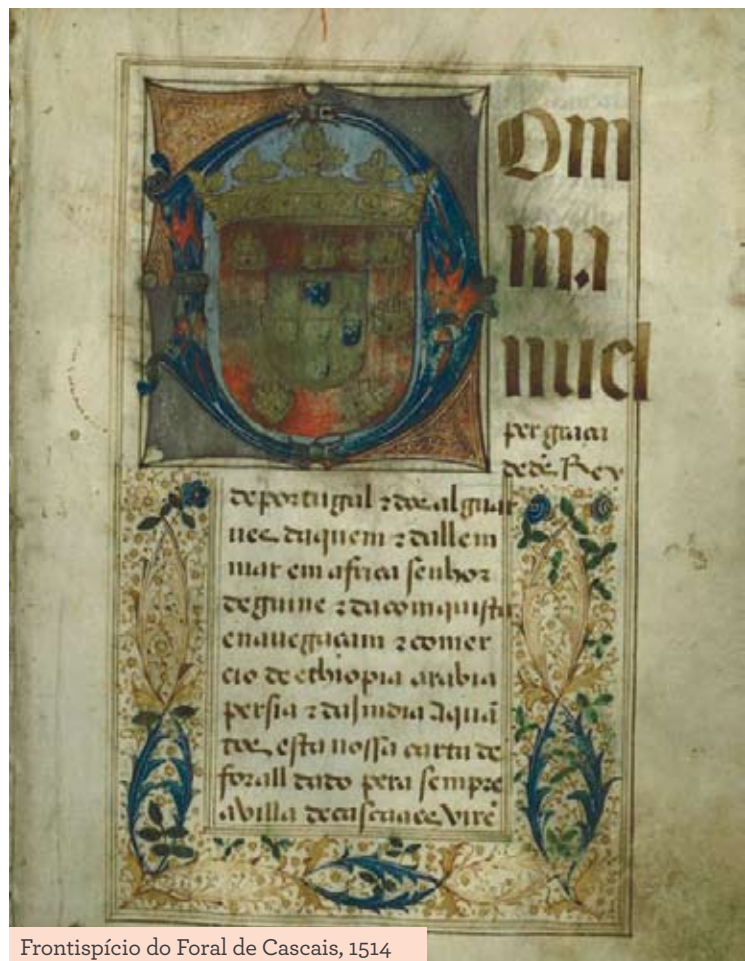 Dom
ma
nuel
per graça
de ds Rey
de portugal ⁊ dos alguar
ues daquem ⁊ dallem
mar em africa senhor
de guine ⁊ da comquista
e nauegaçam ⁊ comer
cio de ethiopia arabia
persia ⁊ da India A quã
tos esta nossa carta de
forall dado pera sempre
a villa de cascaaes virẽ
Frontispício do Foral de Cascais, 1514